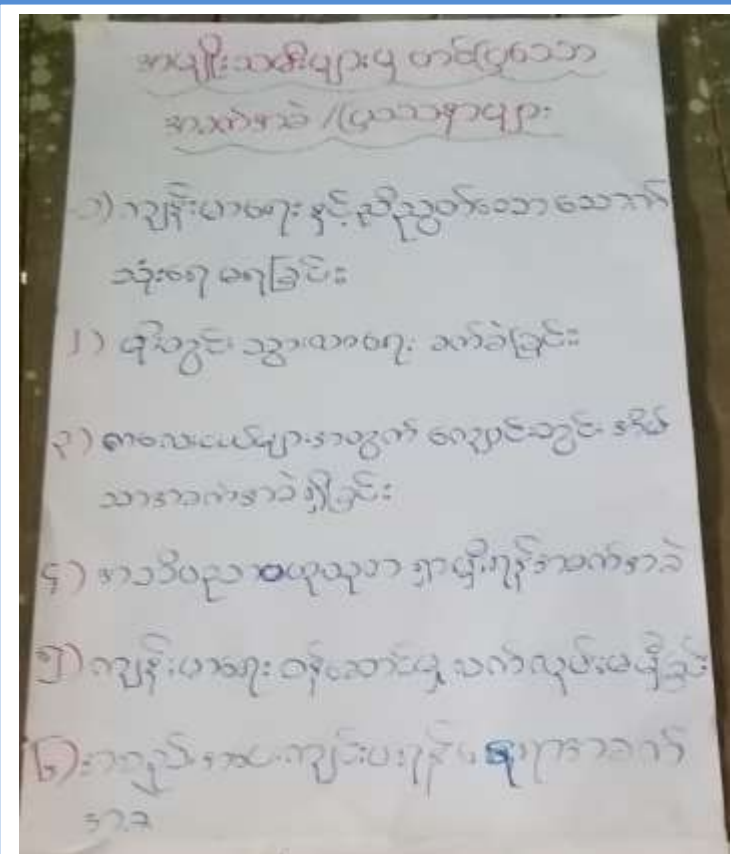 အမျိုးသမီးများမှ တင်ပြသော
အခက်အခဲ /ပြဿနာများ
၁) ကျန်းမာရေး နှင့် ညီညွတ်သော သောက်
သုံးရေ မရခြင်း
၂) မိုးတွင်း သွားလာရေး ခက်ခဲခြင်း
၃) ကလေးငယ်များအတွက် ကျောင်းတွင်း အိမ်
သာအခက်အခဲ ရှိခြင်း
၄) အသိပညာ ဗဟုသုတ ရှာမှီးရန် အခက်အခဲ
၅) ကျန်းမာရေး ဝန်ဆောင်မှု လက်လှမ်းမမှီခြင်း
၆) အစည်းအဝေးကျင်းပရန် နေရာအခက်
အခဲ